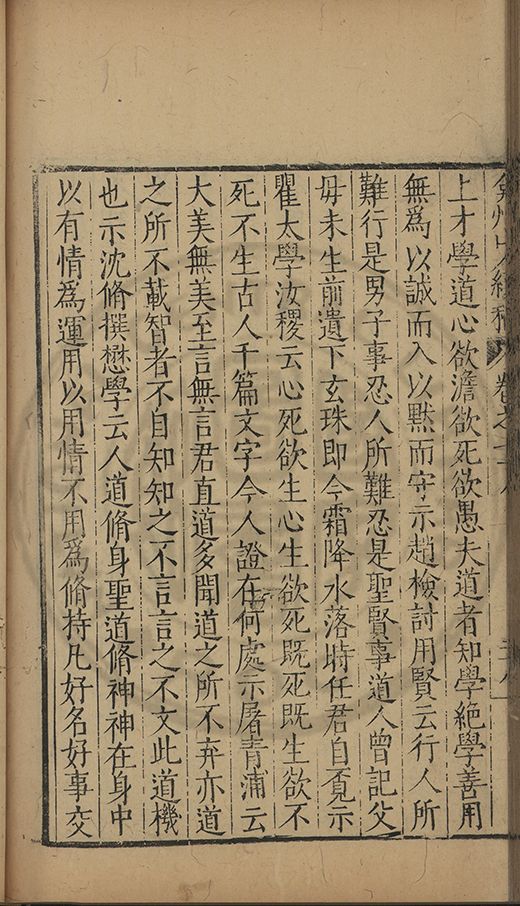 弇州山人續稿 卷之七十八
上才學道心欲澹欲死欲愚夫道者知學絕學善用
無爲以誠而入以默而守示趙檢討用賢云行人所
難行是男子事忍人所難忍是聖賢事道人曾記父
母未生前遺下玄珠即今霜降水落時任君自覓示
瞿太學汝稷云心死欲生心生欲死既死既生欲不
死不生古人千篇文字今人證在何處示屠青浦云
大美無美至言無言君直道多聞道之所不弃亦道
之所不載智者不自知知之不言言之不文此道機
也示沈脩撰懋學云人道脩身聖道脩神神在身中
以有情爲運用以用情不用爲脩持凡好名好事交